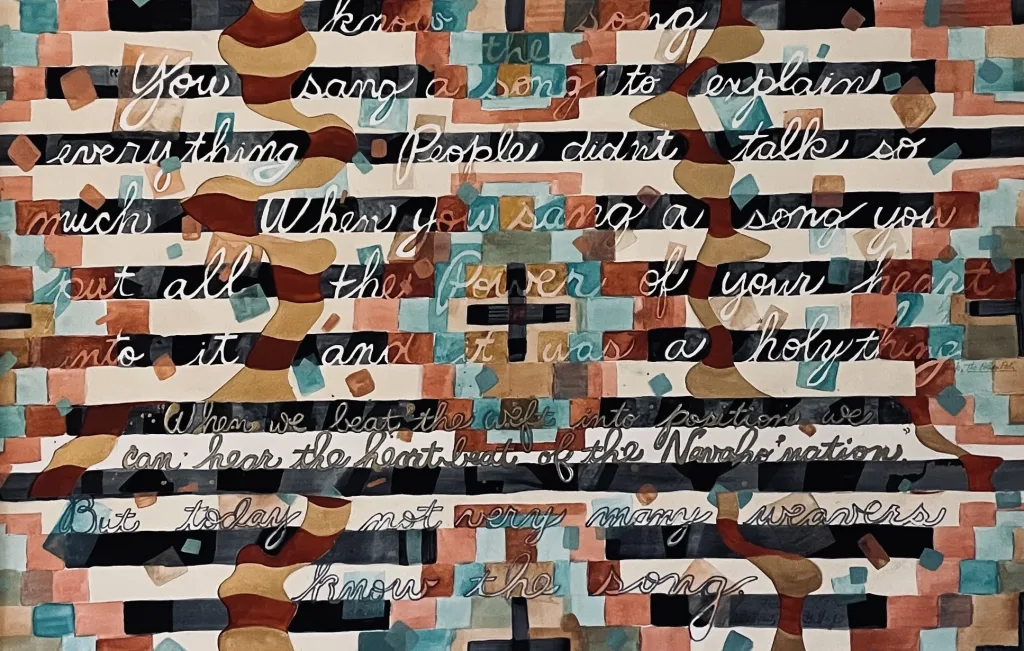 know song
the
"You sang a song to explain
everything People didn't talk so
much When you sang a song you
put all the Power of your heart
into it and it was a holy thing
"When we beat the weft into position we
can hear the heartbeat of the Navaho nation."
But today not very many weavers
know the song.